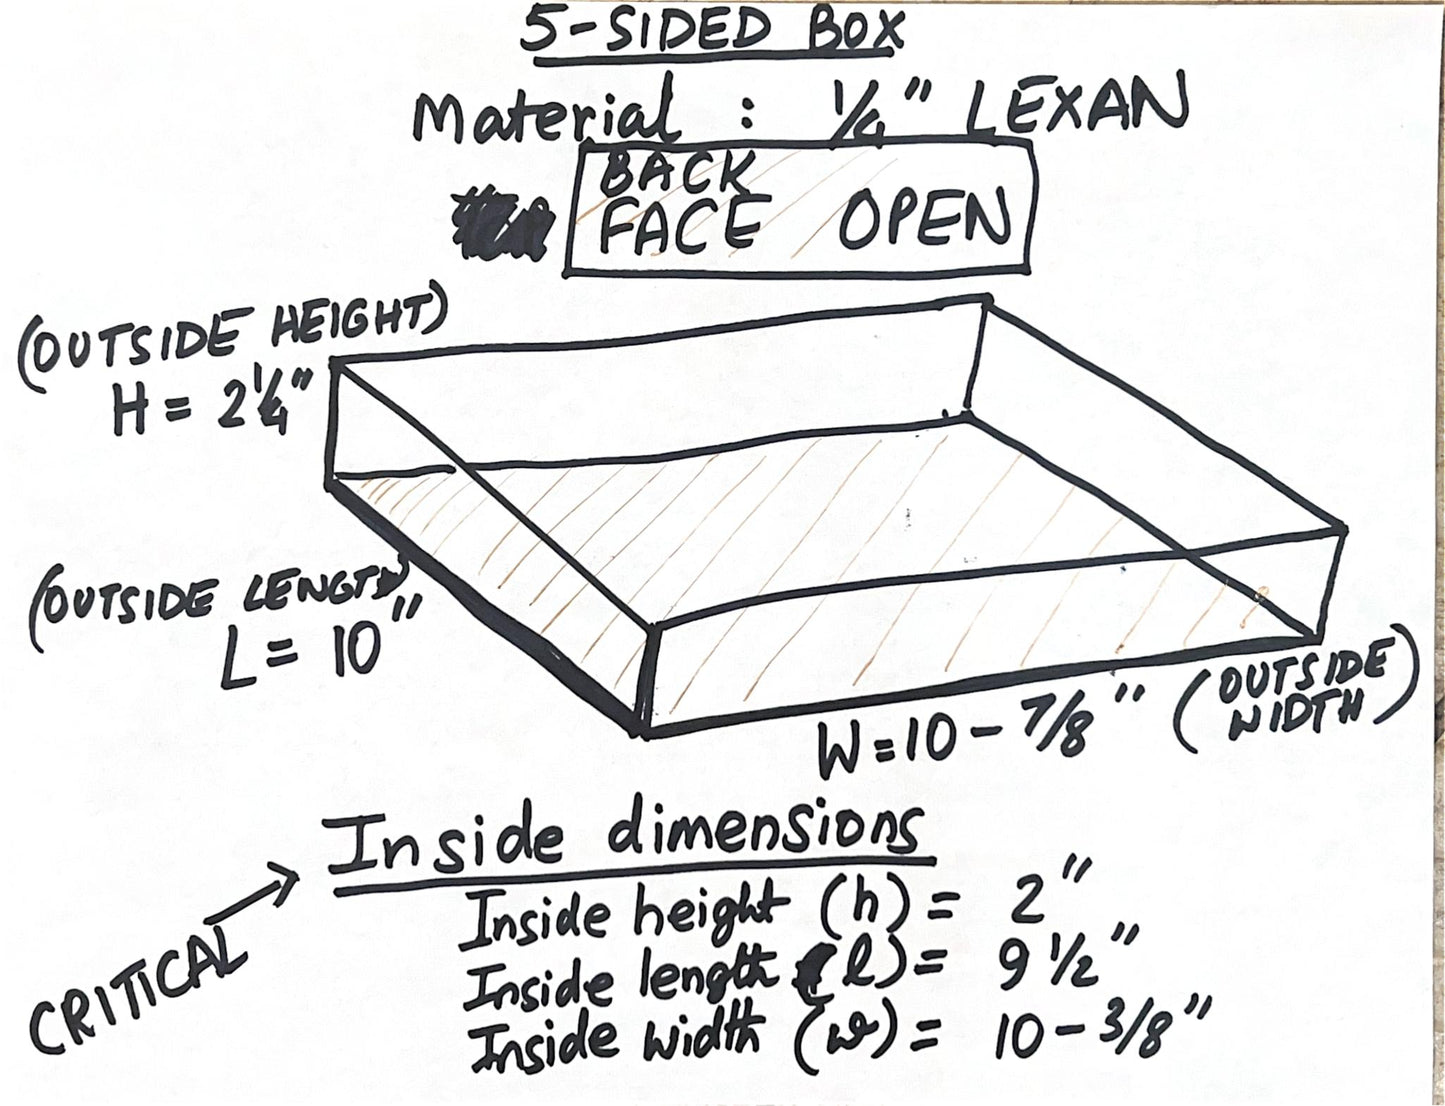 5-SIDED BOX
Material : 1/4" LEXAN
BACK
FACE OPEN
(OUTSIDE HEIGHT)
H = 2 1/4"
(OUTSIDE LENGTH)
L = 10"
W = 10 - 7/8" (OUTSIDE
WIDTH)
CRITICAL → Inside dimensions
Inside height (h) = 2"
Inside length (l) = 9 1/2"
Inside width (w) = 10 - 3/8"